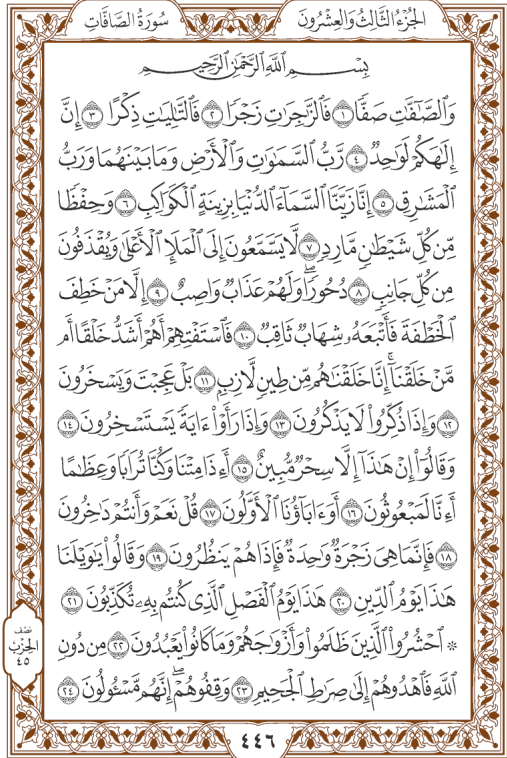 الجُزْءُ الثَّالِثُ وَالعِشْرُونَ
سُورَةُ الصَّافَّاتِ
بِسْمِ اللَّهِ الرَّحْمَٰنِ الرَّحِيمِ
وَالصَّٰٓفَّٰتِ صَفًّا ١ فَالزَّٰجِرَٰتِ زَجْرًا ٢ فَالتَّٰلِيَٰتِ ذِكْرًا ٣ إِنَّ
إِلَٰهَكُمْ لَوَٰحِدٌ ٤ رَّبُّ السَّمَٰوَٰتِ وَالْأَرْضِ وَمَا بَيْنَهُمَا وَرَبُّ
الْمَشَٰرِقِ ٥ إِنَّا زَيَّنَّا السَّمَآءَ الدُّنْيَا بِزِينَةٍ الْكَوَاكِبِ ٦ وَحِفْظًا
مِّن كُلِّ شَيْطَٰنٍ مَّارِدٍ ٧ لَّا يَسَّمَّعُونَ إِلَى الْمَلَإِ الْأَعْلَىٰ وَيُقْذَفُونَ
مِن كُلِّ جَانِبٍ ٨ دُحُورًا ۖ وَلَهُمْ عَذَابٌ وَاصِبٌ ٩ إِلَّا مَنْ خَطِفَ
الْخَطْفَةَ فَأَتْبَعَهُۥ شِهَابٌ ثَاقِبٌ ١٠ فَاسْتَفْتِهِمْ أَهُمْ أَشَدُّ خَلْقًا أَم
مَّنْ خَلَقْنَآ ۚ إِنَّا خَلَقْنَٰهُم مِّن طِينٍ لَّازِبٍ ١١ بَلْ عَجِبْتَ وَيَسْخَرُونَ
١٢ وَإِذَا ذُكِّرُوا۟ لَا يَذْكُرُونَ ١٣ وَإِذَا رَأَوْا۟ ءَايَةً يَسْتَسْخِرُونَ ١٤
وَقَالُوٓا۟ إِنْ هَٰذَآ إِلَّا سِحْرٌ مُّبِينٌ ١٥ أَءِذَا مِتْنَا وَكُنَّا تُرَابًا وَعِظَٰمًا
أَءِنَّا لَمَبْعُوثُونَ ١٦ أَوَءَابَآؤُنَا الْأَوَّلُونَ ١٧ قُلْ نَعَمْ وَأَنتُمْ دَٰخِرُونَ
١٨ فَإِنَّمَا هِىَ زَجْرَةٌ وَٰحِدَةٌ فَإِذَا هُمْ يَنظُرُونَ ١٩ وَقَالُوا۟ يَٰوَيْلَنَا
هَٰذَا يَوْمُ الدِّينِ ٢٠ هَٰذَا يَوْمُ الْفَصْلِ الَّذِى كُنتُم بِهِۦ تُكَذِّبُونَ ٢١
۞ احْشُرُوا۟ الَّذِينَ ظَلَمُوا۟ وَأَزْوَٰجَهُمْ وَمَا كَانُوا۟ يَعْبُدُونَ ٢٢ مِن دُونِ
اللَّهِ فَاهْدُوهُمْ إِلَىٰ صِرَٰطِ الْجَحِيمِ ٢٣ وَقِفُوهُمْ ۖ إِنَّهُم مَّسْـُٔولُونَ ٢٤
نصف
الحزب
٤٥
٤٤٦